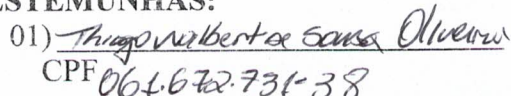 TESTEMUNHAS:
01) Thiago Walbert de Sousa Oliveira
CPF 061.672.731-38